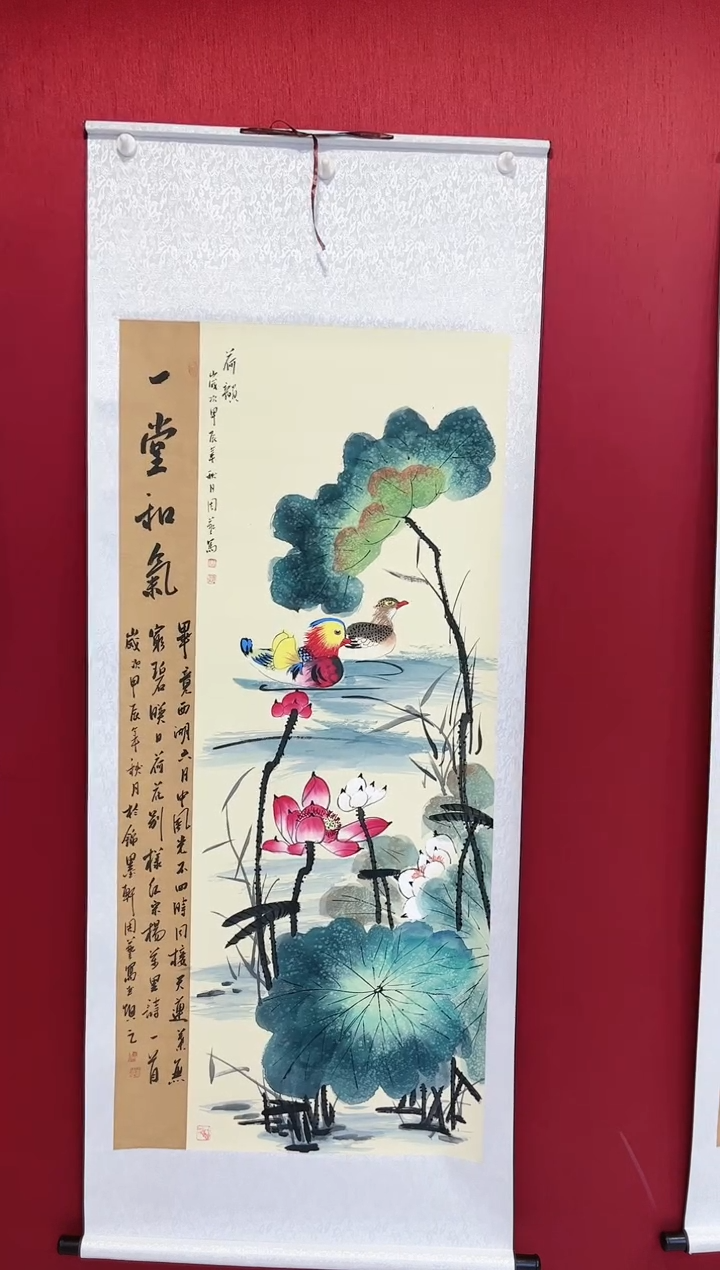 荷韻
歲次甲辰年秋月周藝寫
一堂和氣
畢竟西湖六月中風光不四時同接天蓮葉無
窮碧映日荷花別樣紅宋楊萬里詩一首
歲次甲辰年秋月於錦墨軒周藝寫並題之